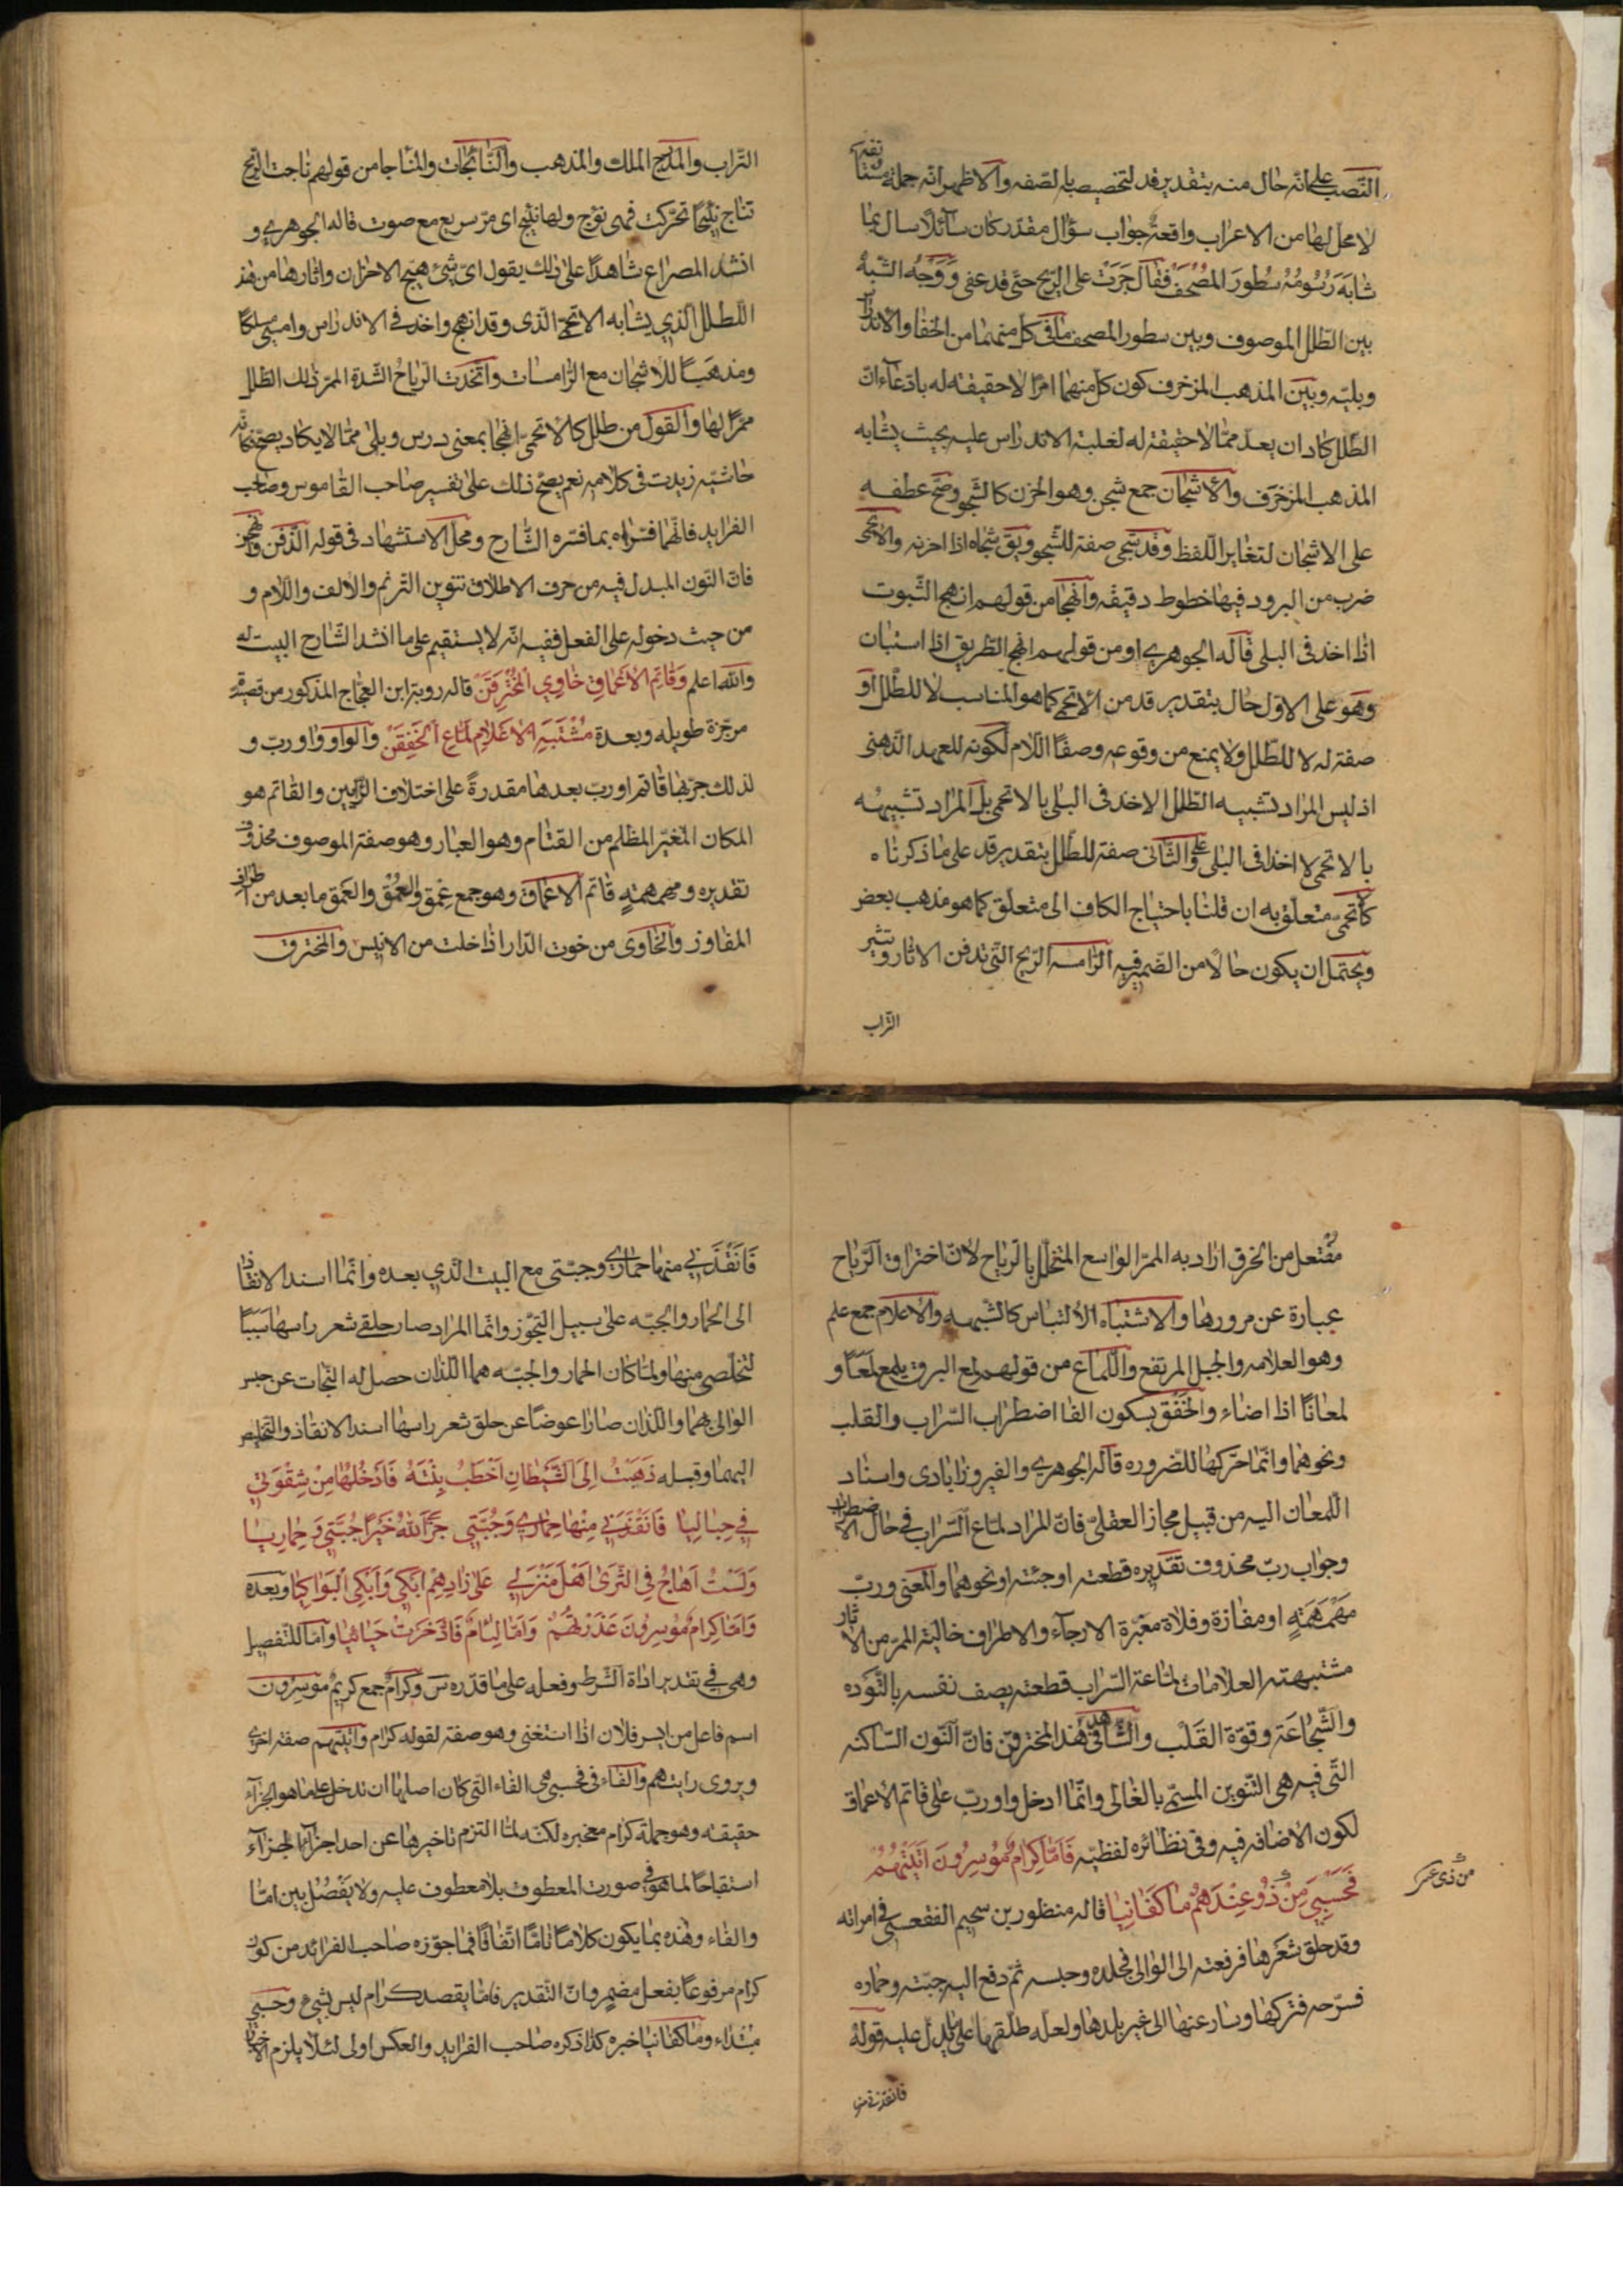 النّصب على انّه حال منه بتقدير قد لتخصيصه بالصّفه والاظهر انّه جملة مستأنفة
لا محلّ لها من الاعراب واقعة جواب سؤال مقدّر كان سآئلاً سال بما
شابه رسُومُهُ سُطورَ المُصْحَف فقال جَرَتْ على الرّيح حتّى قد عفى ووَجْه الشّبهُ
بين الطّلل الموصوف وبين سطور المصحف ما فى كلّ منهما من الخفا والاندراس
وبليه وبين المذهب المزخرف كون كل منهما امرًا لا حقيقة له بادّعآء انّ
الطّلل كاد ان يعدّ ممّا لا حقيقة له لغلبة الاندراس عليه بحيث يشابه
المذهب المزخرف والأشجان جمع شجن وهو الحزن كالشّجو وصحّ عطفه
على الاشجان لتغاير اللّفظ وقد شجى صفة للشّجو ويق شجاه اذا احزنه والاتحمى
ضرب من البرود فيها خطوط دقيقه وانهجا من قولهم انهج الثّبوت
اذا اخذ فى البلى قاله الجوهري او من قولهم انهج الطّريق اذا استبان
وهو على الاوّل حال بتقدير قد من الاتحمى كما هو المناسب لا للطّلل او
صفة له لا للطّلل ولا يمنع من وقوعه وصفًا اللّام لكونه للعهد الذّهنى
اذ ليس المراد تشبيه الطّلل الاخذ فى البلى بالاتحمى بل المراد تشبيهه
بالاتحمى لا اخذا فى البلى وعلى الثّانى صفة للطّلل بتقدير قد على ما ذكرناه
كأتحمى متعلّق به ان قلنا باحتياج الكاف الى متعلّق كما هو مذهب بعض
ويحتمل ان يكون حالاً من الضّمير فيه الرّامسه الرّيح الّتى تدفن الاثار وتثير
التّراب
التّراب والمدرج الملك والمذهب والنّائجات والمنأجا من قولهم نأجت الرّيح
تنأج نئيجًا تحرّكت فهى نؤج ولها نئيج اى مرّ سريع مع صوت قاله الجوهري و
انشد المصراع شاهدًا على ذلك يقول اىّ شئ هيّج الاحزان واثارها من هذ
الطّلل الّذي يشابه الاتحمى الّذى وقد انهج واخذ فى الاندراس وامسى مسلكًا
ومذهبًا للاشجان مع الرّامسات واتّخذت الرّياح الشّدة المرّ ذلك الطّلل
ممرًّا لها والقول من طلل كالأتحمى انهجا بمعنى درس وبلى ممّا لا يكاد يصحّ فكانه
حاشيه زيدت فى كلامه نعم يصحّ ذلك على تفسير صاحب القاموس وصاحب
الفرايد فانّهما فسّراه بما فسّره الشّارح ومحلّ الاستشهاد فى قوله الذّرفن وانهجن
فانّ النّون المبدل فيه من حرف الاطلاق تنوين التّرنم والالف واللّام و
من حيث دخوله على الفعل ففيه انّه لا يستقيم على ما انشد الشّارح البيت له
واللّه اعلم وَقاتِمِ الاَعْماقِ خاوِي المُخْتَرَقَنْ قاله روبة ابن العجّاج المذكور من قصيدة
مرجّزة طويله وبعدة مُشْتَبَهِ الاعْلامِ لَمّاعِ الخَفَقَنْ والواو واو ربّ و
لذلك جرّ بها قاتم او ربّ بعدها مقدرةً على اختلاف الرّأيين والقاتم هو
المكان المغبّر المظلم من القتام وهو الغبار وهو صفة الموصوف محذوف
تقديره ومهمهمتهٍ قاتم الاعماق وهو جمع عمق والعُمْق والعَمق ما بعد من اطراف
المفاوز والخاوى من خوت الدّار اذا خلت من الانيس والمخترق
مفتعل من الخرق اراد به الممرّ الواسع المتخلّل بالرّياح لانّ اختراق الرّياح
عبارة عن مرورها والاشتباه الالتباس كالشّبهه والاعلام جمع علم
وهو العلامه والجبل المرتفع واللّماع من قولهم لمع البرق يلمع لَمعًا و
لمعانًا اذا اضاء والخَفْق بسكون الفا اضطراب السّراب والقلب
ونحوهما وانّما حرّكها للضّروره قاله الجوهري والفيروزابادى واسناد
اللّمعان اليه من قبيل مجاز العقلىّ فانّ المراد لمّاع السّراب فى حال الاضطراب
وجواب ربّ محذوف تقديره قطعته اوجئته او نحوهما والمعنى وربّ
مَهْمَهَمَتهٍ او مفازة وفلاة مغبّرة الارجآء والاطراف خالية الممرّ من الاثار
مشتبهة العلامات لمّاعة السّراب قطعته يصف نفسه بالتّوده
والشّجاعة وقوّة القَلْب والشّاهد فى هذ المخترقن فانّ النّون السّاكنه
التّى فيه هى التّنوين المسمّى بالغالى وانّما ادخل واو ربّ على قاتم الاعماق
لكون الاضافه فيه وفى نظائره لفظيّه فَامّا كِرامٌ مُوسِرُونَ اَتَيْتَهُمْ
فَحَسْبِيَ مِنْ ذُو عِنْدَهُمْ ما كَفانِيا قاله منظور بن سحيم الفقعسى فى امراته
من ذى
وقد حلق شعرها فرفعته الى الوالى فجلده وحبسه ثمّ دفع اليه جبّته وحماره
فسرّحه فتركها وسار عنها الى غير بلدها ولعلّه طلّقها على ما يدلّ عليه قوله
فانقذنى منها
فَانْقَذَنِي منها حماري وجبّتى مع البيت الّذي بعده وانّما اسند الانقاذ
الى الحمار والجبّه على سبيل التجوّز وانّما المراد صار حلقى شعر راسها سببًا
لتخلّصى منها ولمّا كان الحمار والجبّه هما اللّذان حصل له النّجات عن حبس
الوالى بهما واللّذان صارا عوضًا عن حلق شعر راسها اسند الانقاذ والتّخليص
اليهما وقبله ذَهَبْتُ اِلَى الشَّيْطانِ اَخْطُبُ بِنْتَهُ فَادْخَلَها مِنْ شِقْوَتِي
فِي حِبالِيا فَانْقَذَنِي مِنْها حِمارِي وَجُبَّتِي جَزَا اللّٰهُ خَيْرًا جُبَّتِي وَحِمارِيا
وَلَسْتُ اَهاجُ فِى الثَّرى اَهْلَ مَنْزِلِي عَلى زادِهِمْ اَبْكِي وَاُبْكِى الْبَواكِيا وبعده
وَامّا كِرامٌ مُوسِرُونَ عَذَرْتُهُمْ وَامّا لِئامٌ فَاذَّخَرْتُ حَيائِيا وامّا للتّفصيل
وهى فى تقدير اداة الشّرط وفعله على ما قدّره س وكرام جمع كريم موسرون
اسم فاعل من ايسر فلان اذا استغنى وهو صفة لقوله كرام واتيتهم صفة اخرى
ويروى رايتهم والفاء فى فحسبى هى الفاء التى كان اصلها ان تدخل على ما هو الجزآء
حقيقه وهو جملة كرام مع خبره لكنّه لمّا التزم تاخيرها عن احد اجزآء الجزآء
استقباحًا لما هو فى صورت المعطوف بلا معطوف عليه ولا يَفْصُلُ بين امّا
والفاء وهذه بما يكون كلامًا تامًّا اتّفاقًا فما جوّزه صاحب الفرائد من كون
كرام مرفوعًا بفعل مضمر وانّ التّقدير فامّا يقصد كرام ليس بشئ وحسبى
مبتداء وما كفانيا خبره كذا ذكره صاحب الفرايد والعكس اولى لئلّا يلزم الاخبار